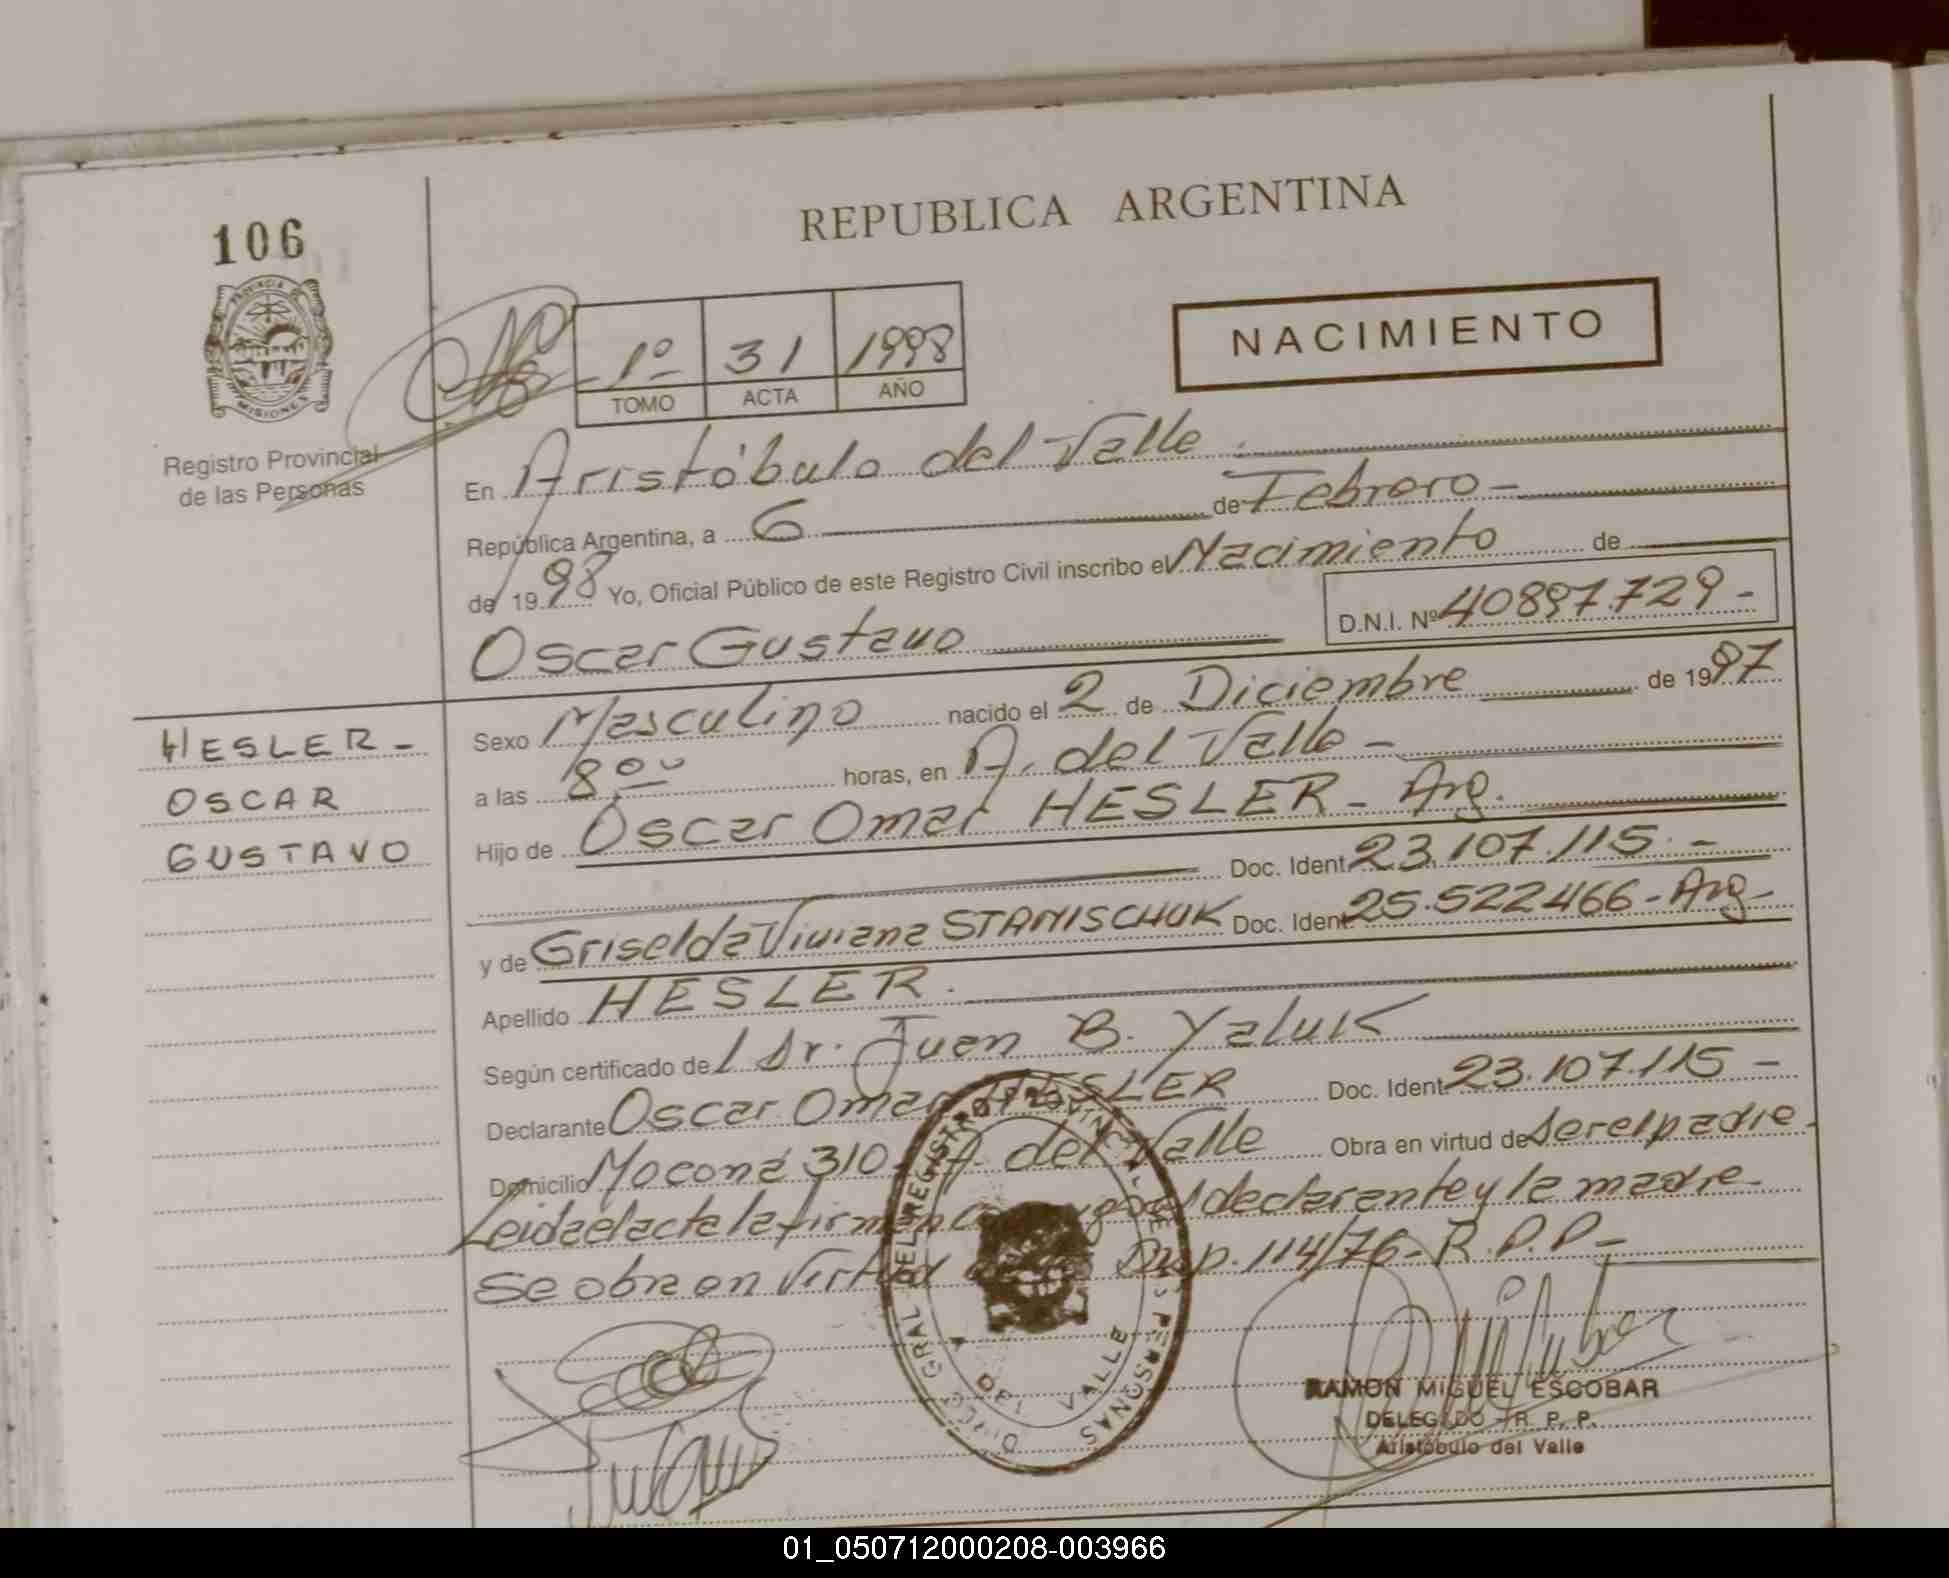 106
REPUBLICA ARGENTINA
PROVINCIA DE
MISIONES
Registro Provincial
de las Personas
1º 31 1998
TOMO ACTA AÑO
NACIMIENTO
En Aristóbulo del Valle
República Argentina, a 6 de Febrero -
de 19 98 Yo, Oficial Público de este Registro Civil inscribo el Nacimiento de
Oscar Gustavo D.N.I. Nº 40897.729 -
HESLER -
OSCAR
GUSTAVO
Sexo Masculino nacido el 2 de Diciembre de 19 97
a las 8 00 horas, en A. del Valle -
Hijo de Oscar Omar HESLER - Arg.
Doc. Ident. 23.107.115. -
y de Griselda Viviana STANISCHUK Doc. Ident. 25.522466 - Arg -
Apellido HESLER.
Según certificado del Dr. Juan B. Yaluk
Declarante Oscar Omar HESLER Doc. Ident. 23.107.115 -
Domicilio Moconá 310 - A. del Valle Obra en virtud de ser el padre.
Leida el acta la firman el declarante y la madre
Se obra en virtud Disp. 114/76 - R.P.P -
DEL VALLE
RAMON MIGUEL ESCOBAR
DELEGADO - R. P. P.
Aristóbulo del Valle
01_050712000208-003966